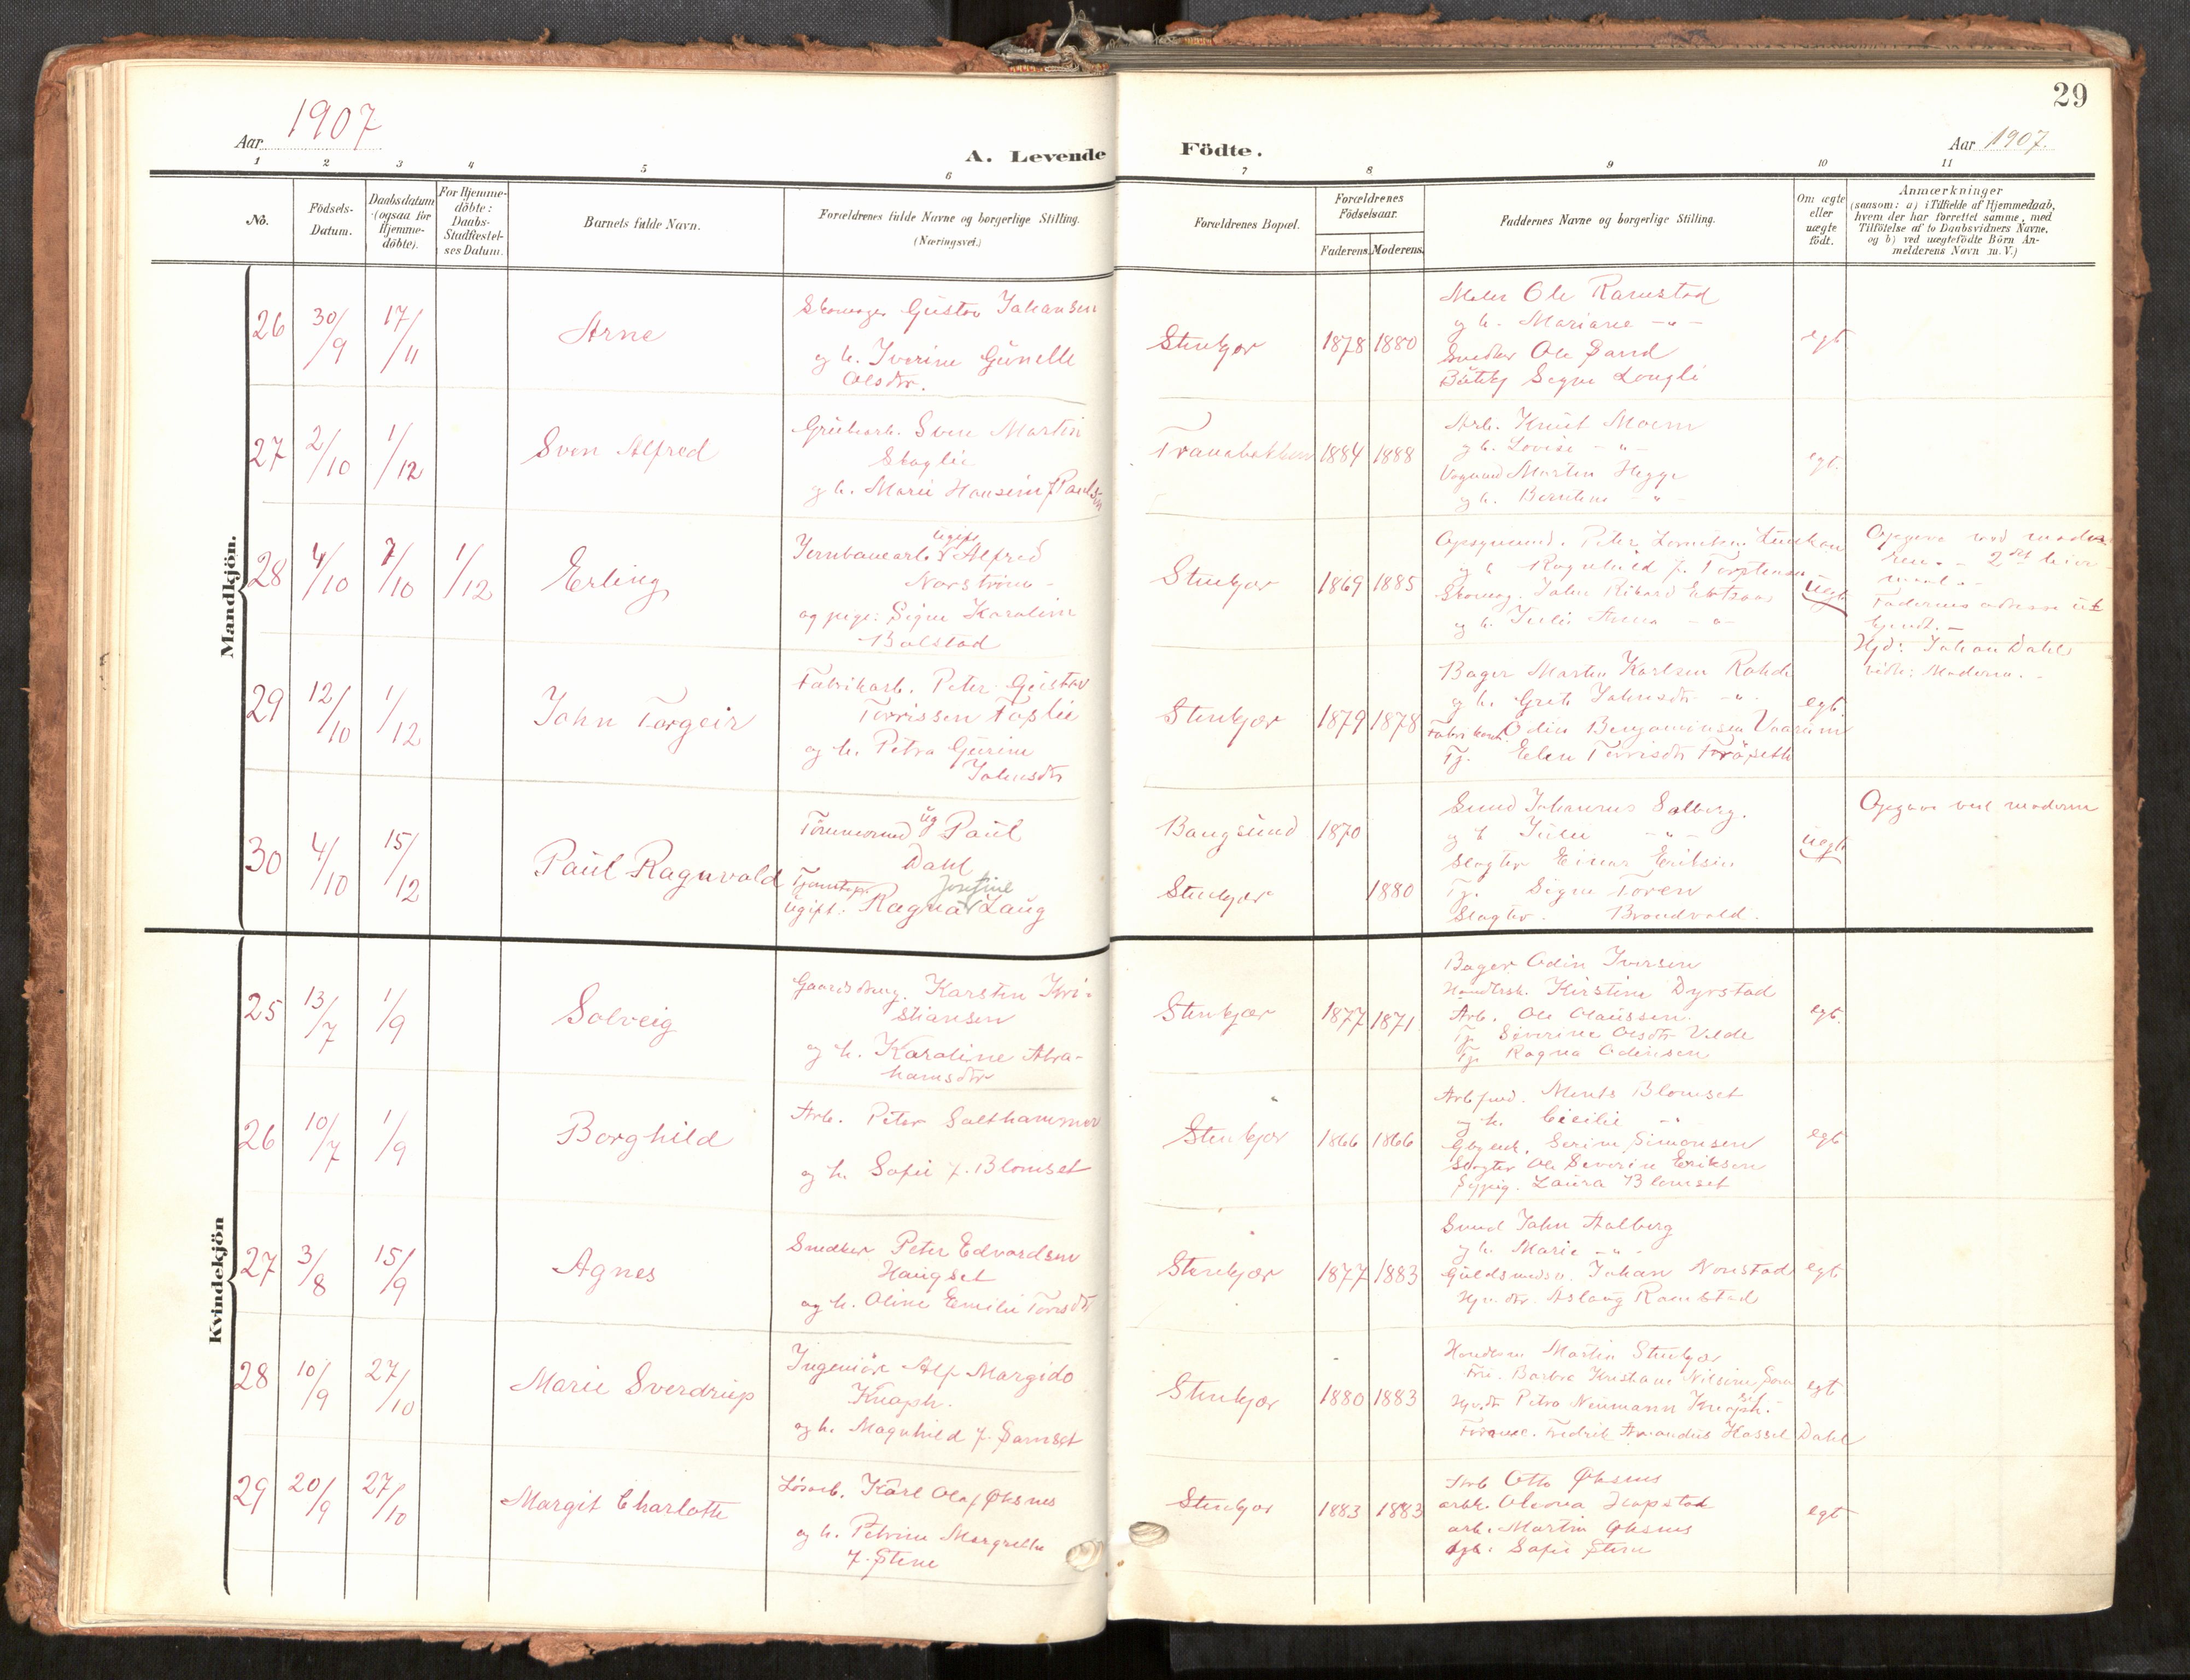 29
Aar 1907
Aar 1907.
A. Levende Födte.
1 2 3 4 5 6 7 8 9 10 11
No.
Födsels-
Datum.
Daabsdatum
(ogsaa for
Hjemme-
döbte).
For Hjemme-
döbte:
Daabs-
Stadfæstel-
ses Datum.
Barnets fulde Navn.
Forældrenes fulde Navne og borgerlige Stilling.
(Næringsvei.)
Forældrenes Bopæl.
Forældrenes
Födselsaar.
Faderens. Moderens.
Faddernes Navne og borgerlige Stilling.
Om ægte
eller
uægte
födt.
Anmærkninger
(saasom: a) i Tilfælde af Hjemmedaab,
hvem der har forrettet samme, med
Tilföielse af to Daabsvidners Navne,
og b) ved uægtefödte Börn An-
melderens Navn m. V.)
Mandkjön.
26 30/9 17/11 Arne
Skomager Gustav Johansen
og h. Iverine Gunelle
Olsdtr.
Stenkjær 1878 1880
Maler Ole Ramstad
og h. Mariane - " -
Snedker Ole Sand
Signe Longli
egt
27 2/10 1/12 Sven Alfred
Grubearb. Sven Martin
Skoglie
og h. Marie Hansine f. Paulsen
Tranabakken 1884 1888
Arb. Knut Moen
og h. Lovise - " -
Martin Hegge
og h. - " -
egt.
28 4/10 7/10 1/12 Erling
Jernbanearb. ugift Alfred
Norstrøm
og pige: Signe Karoline
Bolstad
Stenkjær 1869 1885
Opsynsmand. Peter
og h. Ragnhild f. Torstensen
Skomag. Johan Rikard
og h. Julie Anna - " -
uegt
Opgave ved mode-
ren. - 2det leier-
maal. -
Faderens adresse u
kjendt. -
Hjd: Johan Dahl
vidn: Moderen. -
29 12/10 1/12 John Torgeir
Fabrikarb. Peter Gustav
Torrissen Foslie
og h. Petra Gurine
Johnsdtr
Stenkjær 1879 1878
Bager Martin Karlsen Rohde
og h. Grete Johnsdtr - " -
Odin Benjaminsen
Tj. Elen Torrisdtr
egt
30 4/10 15/12 Paul Ragnvald
Tømmermd ug Paul
Dahl
Tjenestepi.
ugift. Ragna Josefine Laug
Bangsund 1870
Stenkjær 1880
Smed Johannes Salberg.
og h Julie - " -
Slagter Einar Eriksen
Tj. Signe Foren
Slagter. Brandvold.
uegt
Opgave ved moderen
Kvindekjön
25 13/7 1/9 Solveig
Gaardsbrug. Karsten Kri-
stiansen
og h. Karoline Abra-
hamsdtr
Stenkjær 1877 1871
Bager Odin Iversen
Handlersk. Kirstine Dyrstad
Arb. Ole Olaussen.
Tj. Severine Olsdtr Velde
Tj. Ragna Odinsen
egt.
26 10/7 1/9 Borghild
Arb. Peter Salthammer
og h. Sofie f. Blomset
Stenkjær 1866 1866
Ments Blomset
og h. Cicilie - " -
Serine Simonsen
Slagter Ole Severin Eriksen
Sypig. Laura Blomset
egt
27 3/8 15/9 Agnes
Snedker Peter Edvardsen
Haugset
og h. Oline Emilie Torisdtr
Stenkjær 1877 1883
Smed John Aalberg
og h. Marie - " -
Guldsmedsv. Johan Nonstad
Hjv. dtr. Aslaug Ramstad
egt
28 10/9 27/10 Marie Sverdrup
Ingeniør Alf Margido
Knaph.
og h. Magnhild f. Samset
Stenkjær 1880 1883
Handlsm Martin Stenkjær
Frk. Barbra Kristiane Nilsine
Hjv. dt Petra Neumann Knaph.
Fredrik Amandus Hassel Dahl
egt
29 20/9 27/10 Margit Charlotte
Løsarb. Karl Olaf Øksnes
og h. Petrine Margrethe
f. Stene
Stenkjær 1883 1883
Arb Otto Øksnes
arbk. Olevna Hopstad
arb. Martin Øksnes
Sofie Stene
egt